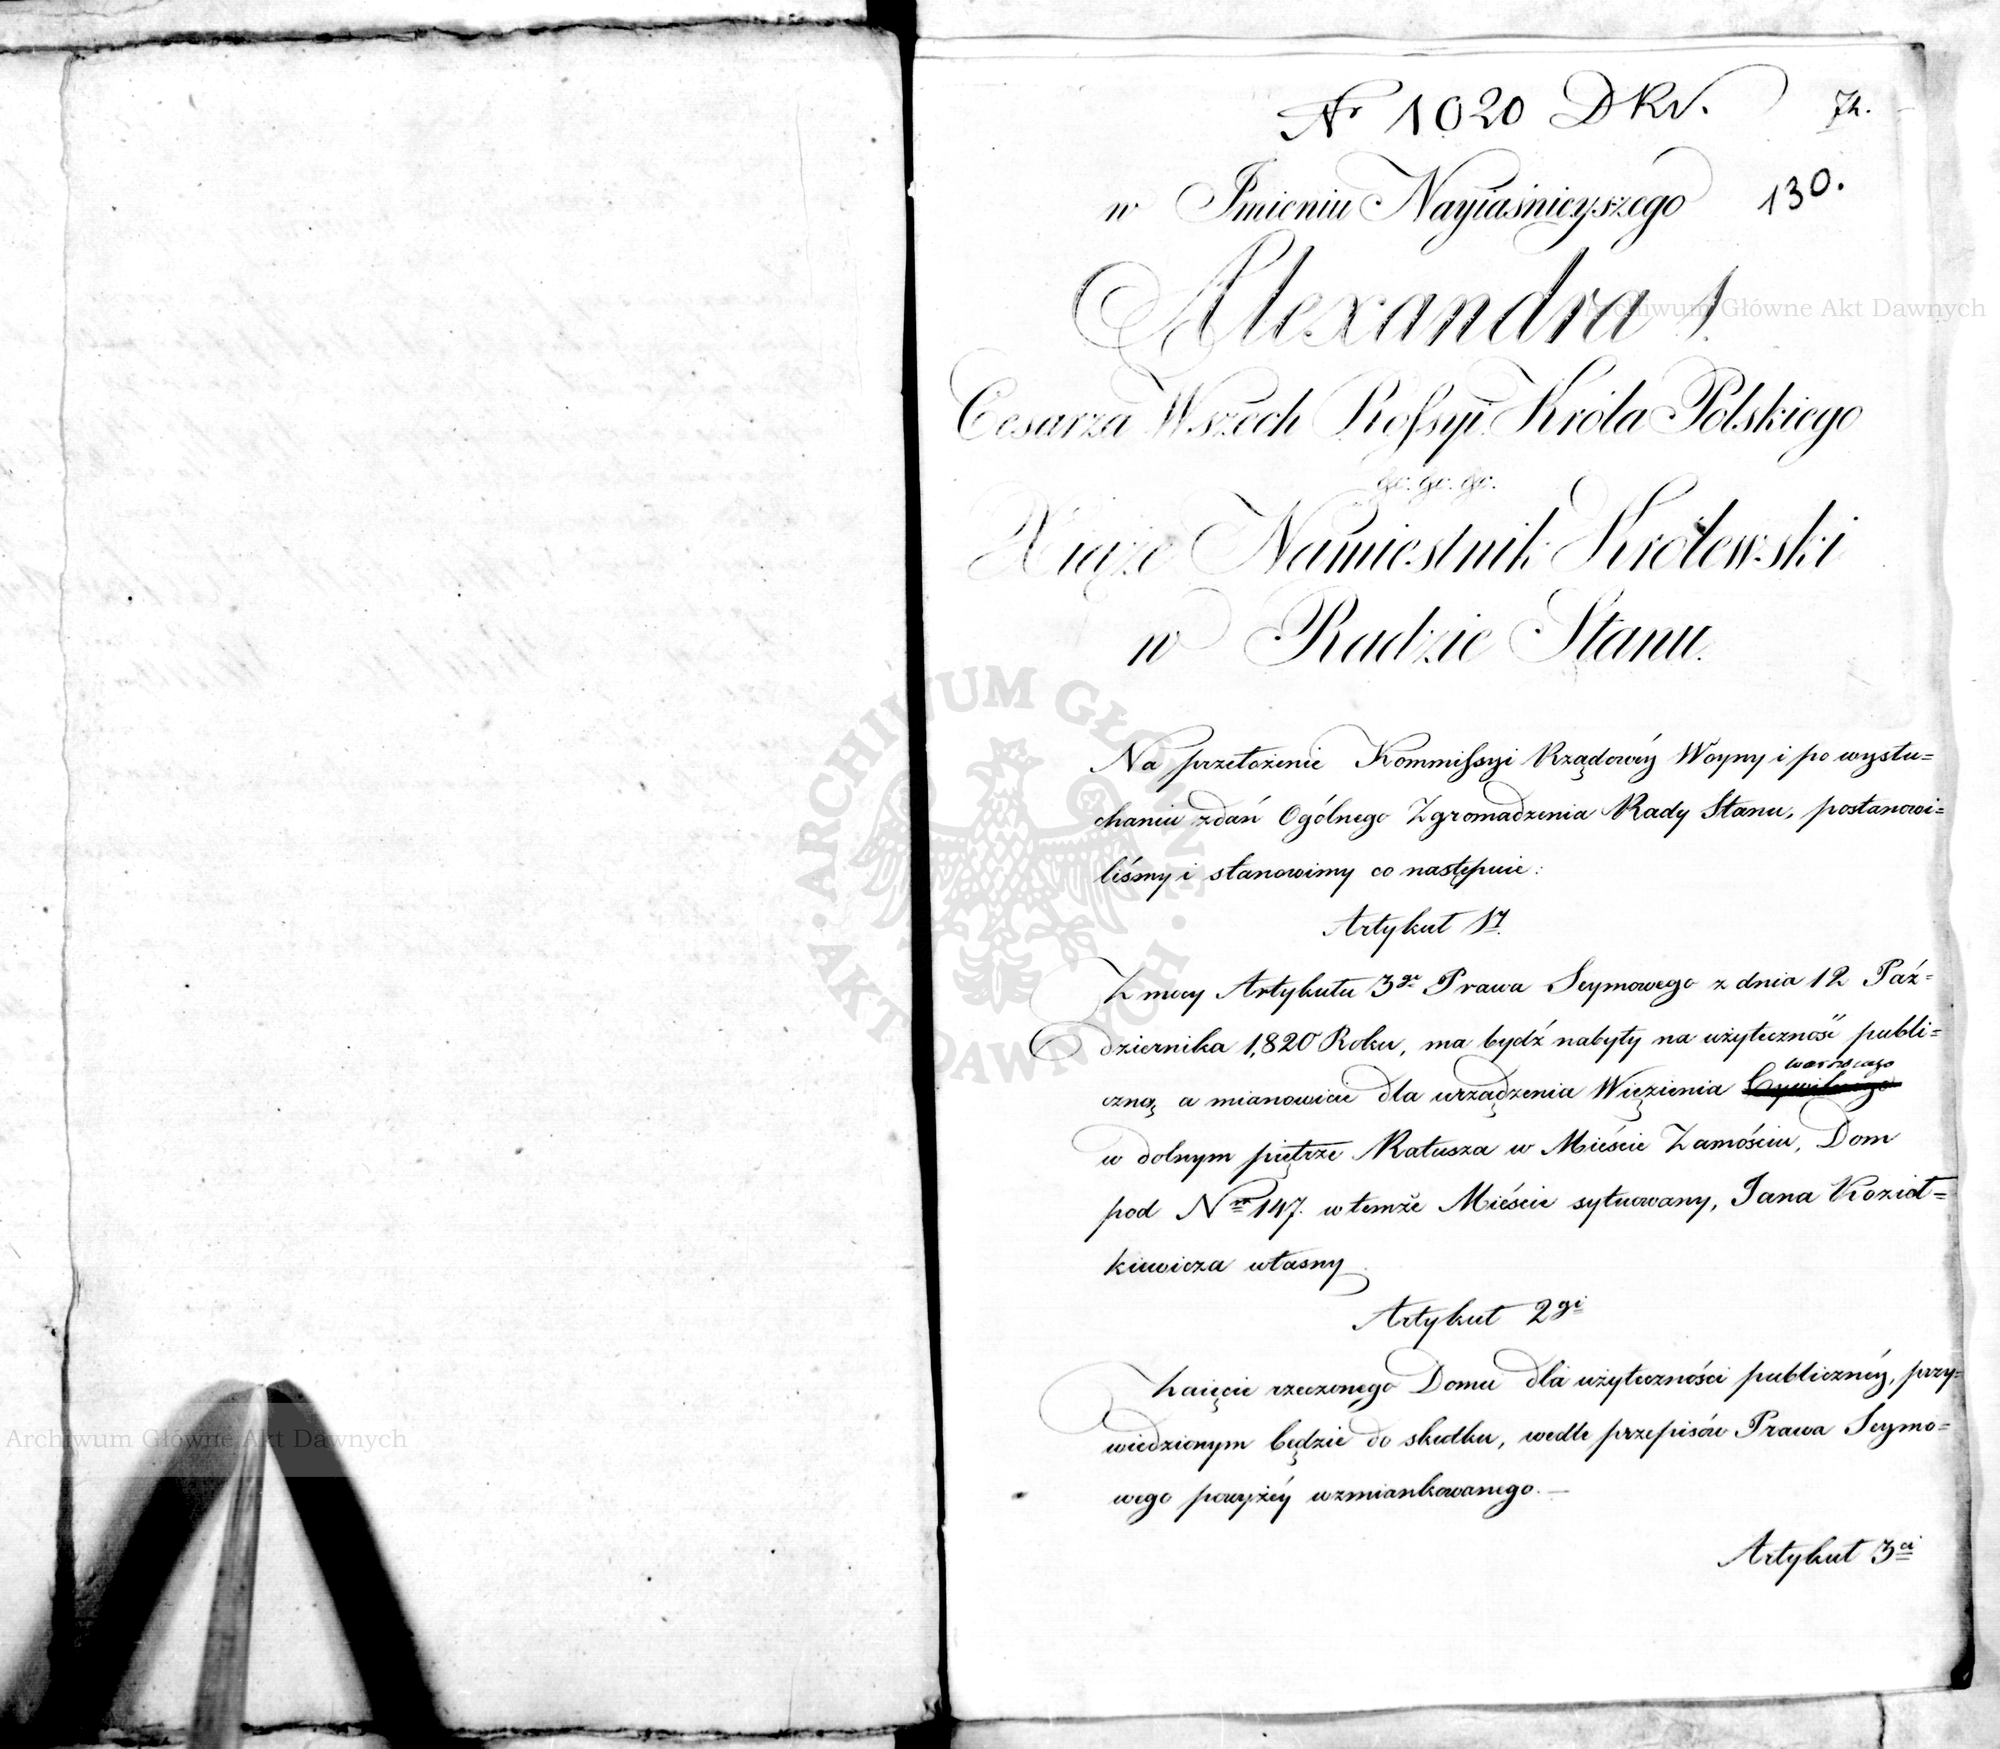 Nr 1020 DKr.
72.
130.
w Imieniu Nayiaśnieyszego
Alexandra I
Cesarza Wszech Rossyi Króla Polskiego
&c. &c. &c.
Xiąże Namiestnik Królewski
w Radzie Stanu.
Na przełożenie Kommissyi Rządowéy Woyny i po wysłu=
chaniu zdań Ogólnego Zgromadzenia Rady Stanu, postanowi=
liśmy i stanowimy co następuie:
Artykuł 1y
Z mocy Artykułu 3go Prawa Seymowego z dnia 12 Paź=
dziernika 1,820 Roku, ma bydź nabyty na użyteczność publi=
czną a mianowicie dla urządzenia Więzienia Cywilnego
w dolnym piętrze Ratusza w Mieście Zamościu, Dom
pod Nrem 147. w temże Mieście sytuowany, Jana Kozioł=
kiewicza własny
Artykuł 2gi
Zaięcie rzeczonego Domu dla użyteczności publicznéy, przy=
wiedzionym będzie do skutku, wedle przepisów Prawa Seymo=
wego powyżéy wzmiankowanego. —
Artykuł 3ci
Archiwum Główne Akt Dawnych
Archiwum Główne Akt Dawnych
· ARCHIWUM GŁÓWNE · AKT DAWNYCH